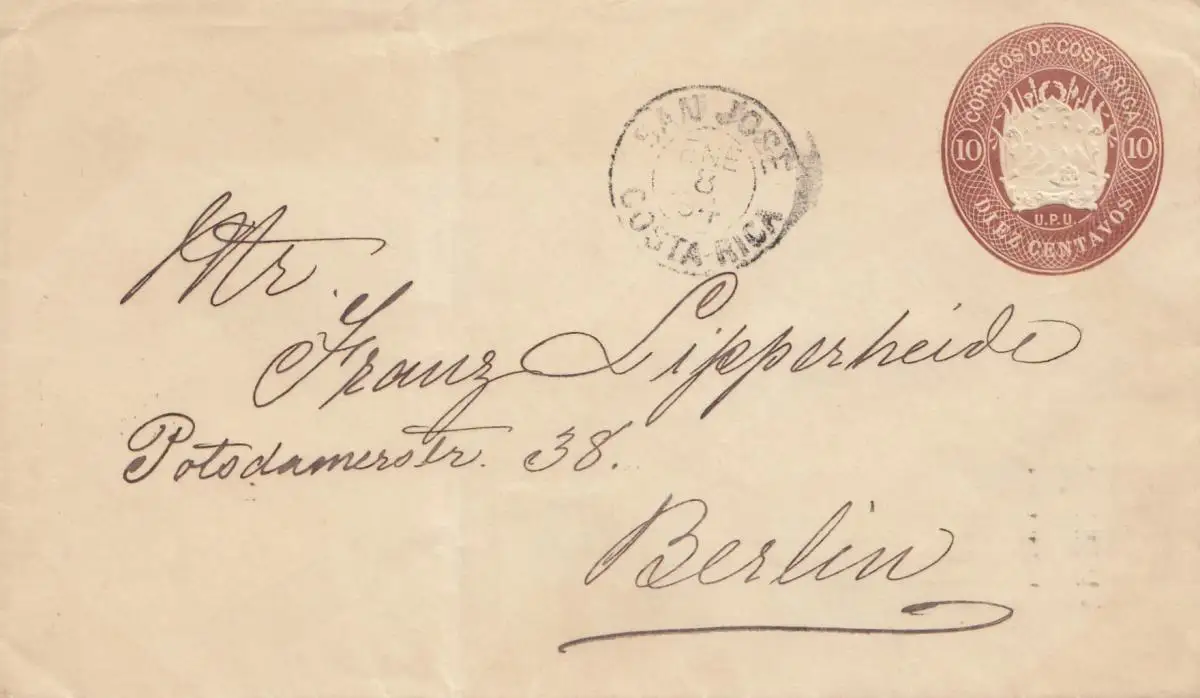 CORREOS DE COSTA RICA
10 10
U.P.U.
DIEZ CENTAVOS
SAN JOSE
ENE
8
COSTA-RICA
Mr.
Franz Lipperheide
Potsdamerstr. 38.
Berlin